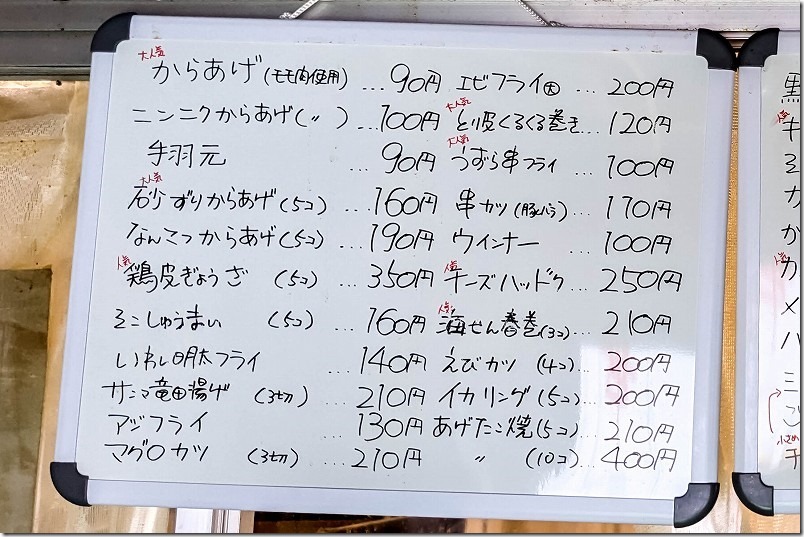 大人気
からあげ(モモ肉使用) ...90円
ニンニクからあげ(〃) ...100円
手羽元 ...90円
大人気
砂ずりからあげ(5コ) ...160円
なんこつからあげ(5コ) ...190円
人気
鶏皮ぎょうざ (5コ) ...350円
えこしゅうまい (5コ) ...160円
いわし明太フライ ...140円
サンマ竜田揚げ (3切) ...210円
アジフライ ...130円
マグロカツ (3切) ...210円
エビフライ(大) ...200円
大人気
とり皮くるくる巻き...120円
大人気
うずら串フライ ...100円
串カツ(豚バラ) ...170円
ウインナー ...100円
人気
チーズハッドク ...250円
人気
海せん春巻(3コ) ...210円
えびカツ (4コ) ...200円
イカリング(5コ) ...200円
あげたこ焼(5コ) ...210円
〃 (10コ) ...400円